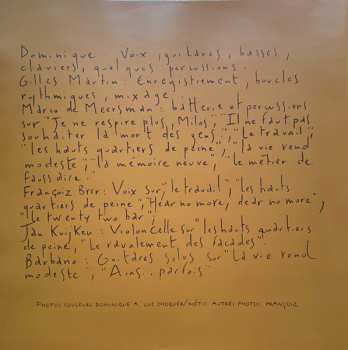 Dominique Voix, guitares, basses,
claviers, quelques percussions.
Gilles Martin: Enregistrement, boucles
rythmiques, mixage
Marco de Meersman: batterie et percussions
sur "Je ne respire plus, Milos", "Il ne faut pas
souhaiter la mort des gens", "Le travail",
"les hauts quartiers de peine", "la vie rend
modeste", "la mémoire neuve", "le métier de
faussaire".
Françoiz Brrr: Voix sur "le travail", "les hauts
quartiers de peine", "Hear no more, dear no more",
"Le twenty two bar",
Jan Kuijken: Violoncelle sur "les hauts quartiers
de peine", "Le ravalement des façades"
Barbara: Guitares solos sur "La vie rend
modeste", "Ains.. parfois"
PHOTOS COULEURS DOMINIQUE A. LUC AUTRES PHOTOS FRANÇOIZ